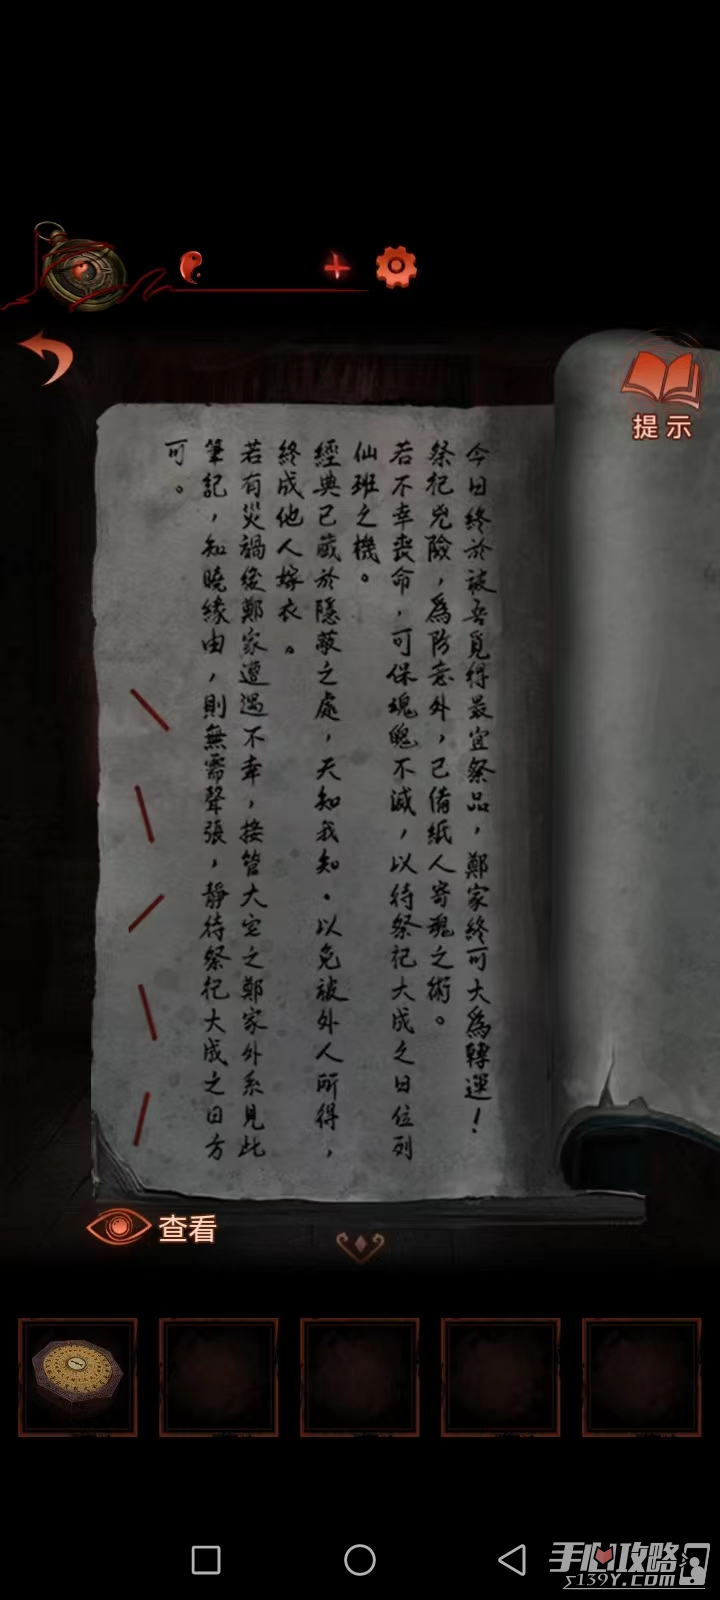 提示
今日終於被吾覓得最宜祭品，鄭家終可大爲轉運！
祭祀兇險，爲防意外，已備紙人寄魂之術。
若不幸喪命，可保魂魄不滅，以待祭祀大成之日位列
仙班之機。
經典已藏於隱蔽之處，天知我知。以免被外人所得，
終成他人嫁衣。
若有災禍後鄭家遭遇不幸，接管大宅之鄭家外系見此
筆記，知曉緣由，則無需聲張，靜待祭祀大成之日方
可。
查看
手心攻略
5139Y.com